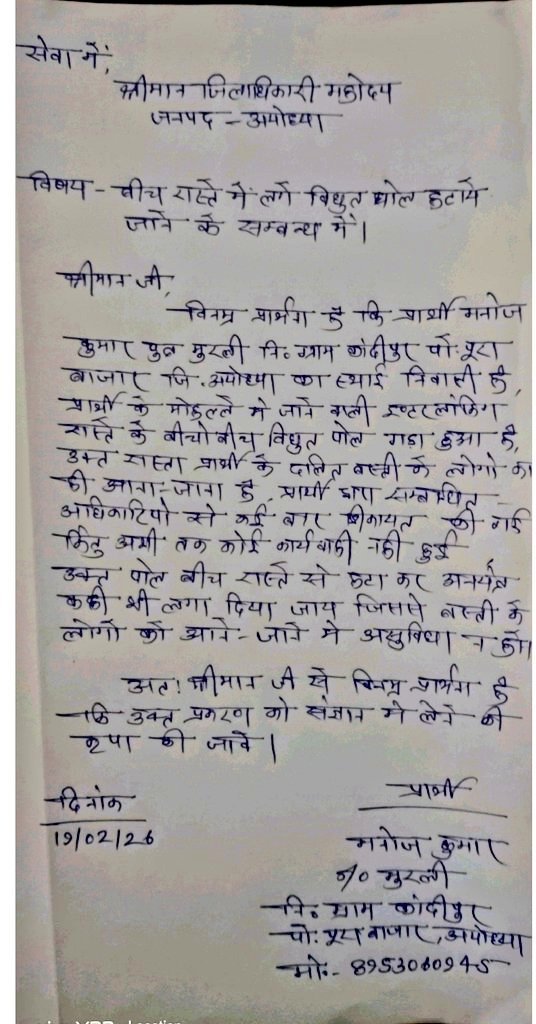 सेवा में,
श्रीमान जिलाधिकारी महोदय
जनपद - अयोध्या
विषय - बीच रास्ते में लगे विधुत पोल हटाये
जाने के सम्बन्ध में।
श्रीमान जी,
विनम्र प्रार्थना है कि प्रार्थी मनोज
कुमार पुत्र मुरली नि० ग्राम कांदीपुर पो. पूरा
बाजार जि. अयोध्या का स्थाई निवासी है,
प्रार्थी के मोहल्ले मे जाने वाली इण्टरलॉकिंग
रास्ते के बीचो बीच विधुत पोल गडा हुआ है,
उक्त रास्ता प्रार्थी के दलित बस्ती के लोगो का
ही आना-जाना है, प्रार्थी द्वारा सम्बन्धित
अधिकारियो से कई बार शिकायत की गई
किंतु अभी तक कोई कार्यवाही नही हुई
उक्त पोल बीच रास्ते से हटा कर अन्यत्र
कही भी लगा दिया जाय जिससे बस्ती के
लोगो को आने-जाने मे असुविधा न हो।
अतः श्रीमान जी से विनम्र प्रार्थना है
कि उक्त प्रकरण को संज्ञान मे लेने की
कृपा की जावे।
प्रार्थी
दिनांक
19/02/26
मनोज कुमार
S/o मुरली
नि० ग्राम कांदीपुर
पो. पूरा बाजार, अयोध्या
मो.- 8953060945